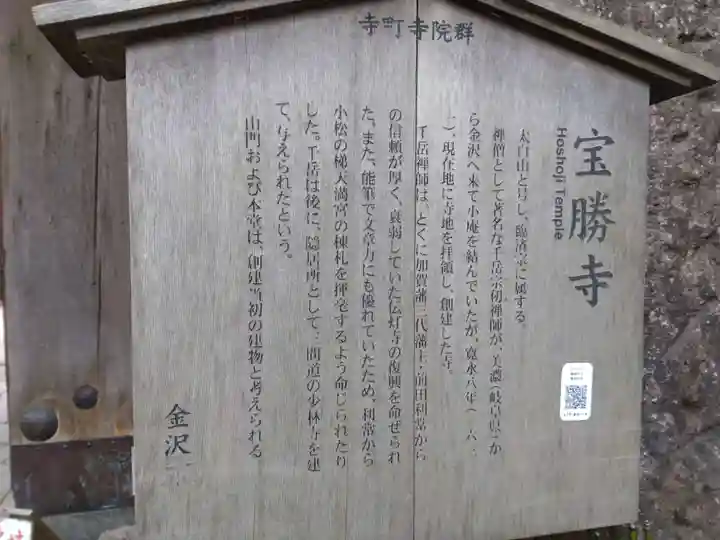 寺町寺院群
宝勝寺
Hoshoji Temple
太白山と号し、臨済宗に属する。
禅僧として著名な千岳宗仭禅師が、美濃(岐阜県)か
ら金沢へ来て小庵を結んでいたが、寛永八年(一六
)、現在地に寺地を拝領し、創建した寺。
千岳禅師は、とくに加賀藩三代藩主・前田利常から
の信頼が厚く、衰弱していた仏灯寺の復興を命ぜられ
た。また、能筆で文章力にも優れていたため、利常から
小松の梯天満宮の棟札を揮毫するよう命じられたり
した。千岳は後に、隠居所として三間道の少林寺を建
て、与えられたという。
山門および本堂は、創建当初の建物と考えられる
金沢